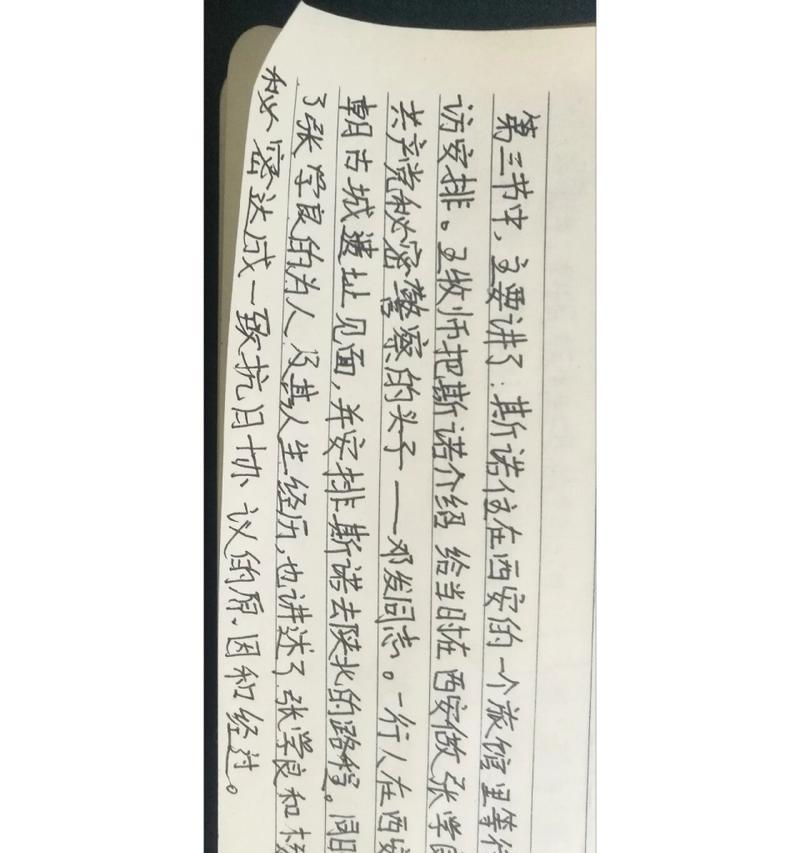 第三节中，主要讲了：斯诺住在西安的一个旅馆里等待
访安排。王牧师把斯诺介绍给当时在西安做张学
共产党秘密警察的头子——邓发同志。一行人在西安
朝古城遗址见面，并安排斯诺去陕北的路程。同
了张学良的为人及其人生经历，也讲述了张学良和杨
秘密达成一致抗日协议的原因和经过。